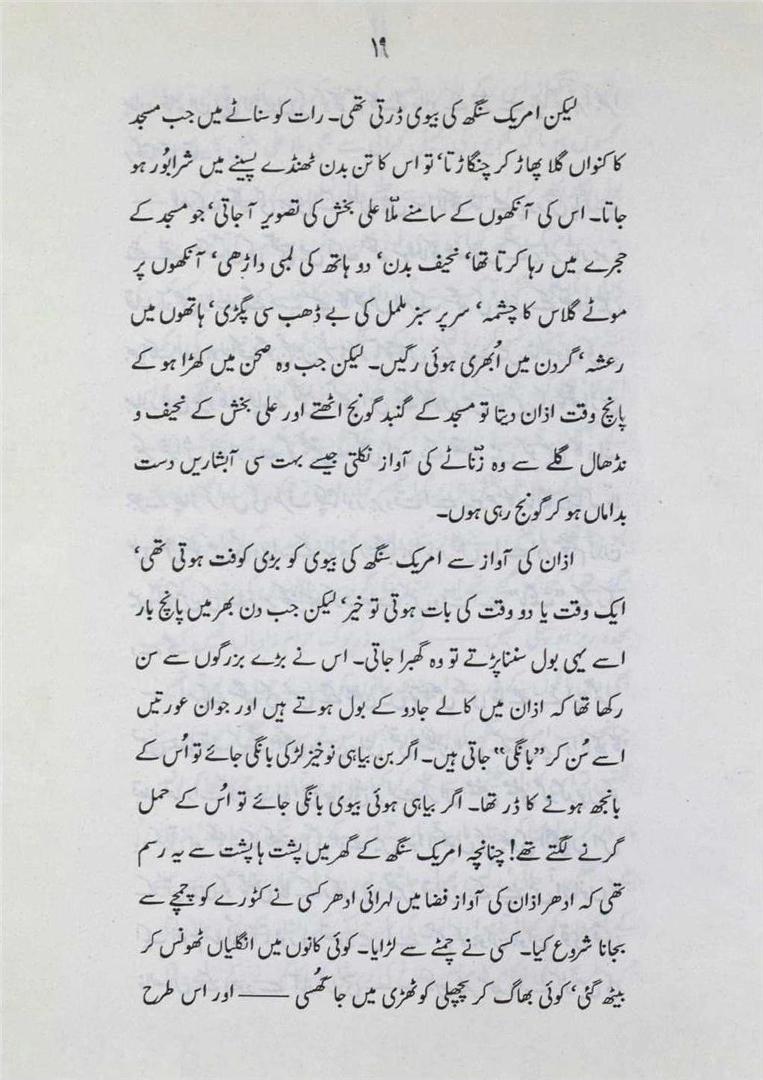 ۱۹
لیکن امریک سنگھ کی بیوی ڈرتی تھی۔ رات کو سناٹے میں جب مسجد
کا کنواں گلا پھاڑ کر چنگاڑتا، تو اس کا تن بدن ٹھنڈے پسینے میں شرابُور ہو
جاتا۔ اس کی آنکھوں کے سامنے ملّا علی بخش کی تصویر آ جاتی، جو مسجد کے
حجرے میں رہا کرتا تھا، نحیف بدن، دو ہاتھ کی لمبی داڑھی، آنکھوں پر
موٹے گلاس کا چشمہ، سر پر سبز ململ کی بے ڈھب سی پگڑی، ہاتھوں میں
رعشہ، گردن میں اُبھری ہوئی رگیں۔ لیکن جب وہ صحن میں کھڑا ہو کے
پانچ وقت اذان دیتا تو مسجد کے گنبد گونج اٹھتے اور علی بخش کے نحیف و
نڈھال گلے سے وہ زنّاٹے کی آواز نکلتی جیسے بہت سی آبشاریں دست
بداماں ہو کر گونج رہی ہوں۔
اذان کی آواز سے امریک سنگھ کی بیوی کو بڑی کوفت ہوتی تھی،
ایک وقت یا دو وقت کی بات ہوتی تو خیر، لیکن جب دن بھر میں پانچ بار
اسے یہی بول سننا پڑتے تو وہ گھبرا جاتی۔ اس نے بڑے بزرگوں سے سن
رکھا تھا کہ اذان میں کالے جادو کے بول ہوتے ہیں اور جوان عورتیں
اسے سُن کر ”بانگی“ جاتی ہیں۔ اگر بن بیاہی نوخیز لڑکی بانگی جائے تو اُس کے
بانجھ ہونے کا ڈر تھا۔ اگر بیاہی ہوئی بیوی بانگی جائے تو اُس کے حمل
گرنے لگتے تھے! چنانچہ امریک سنگھ کے گھر میں پشت ہا پشت سے یہ رسم
تھی کہ ادھر اذان کی آواز فضا میں لہرائی ادھر کسی نے کٹورے کو چمچے سے
بجانا شروع کیا۔ کسی نے چمٹے سے لڑایا۔ کوئی کانوں میں انگلیاں ٹھونس کر
بیٹھ گئی، کوئی بھاگ کر پچھلی کوٹھڑی میں جا گھُسی —— اور اس طرح